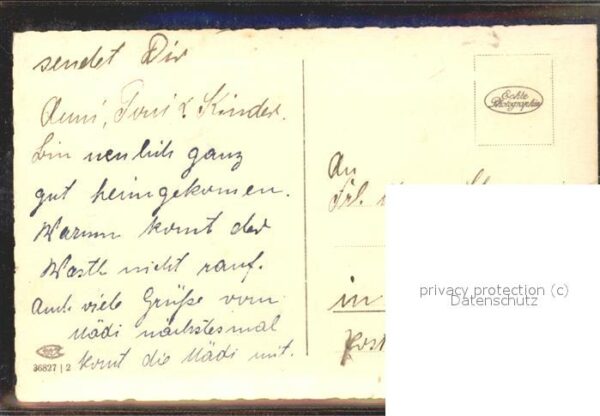 sendet Dir
Anni, Toni & Kinder.
bin neulich ganz
gut heimgekomen.
Warum komt der
Wastl nicht rauf.
Auch viele Grüße vom
Mädi nächstesmal
komt die Mädi mit.
36827 | 2
Echte
Photographie
An
Frl.
in
Post
privacy protection (c)
Datenschutz